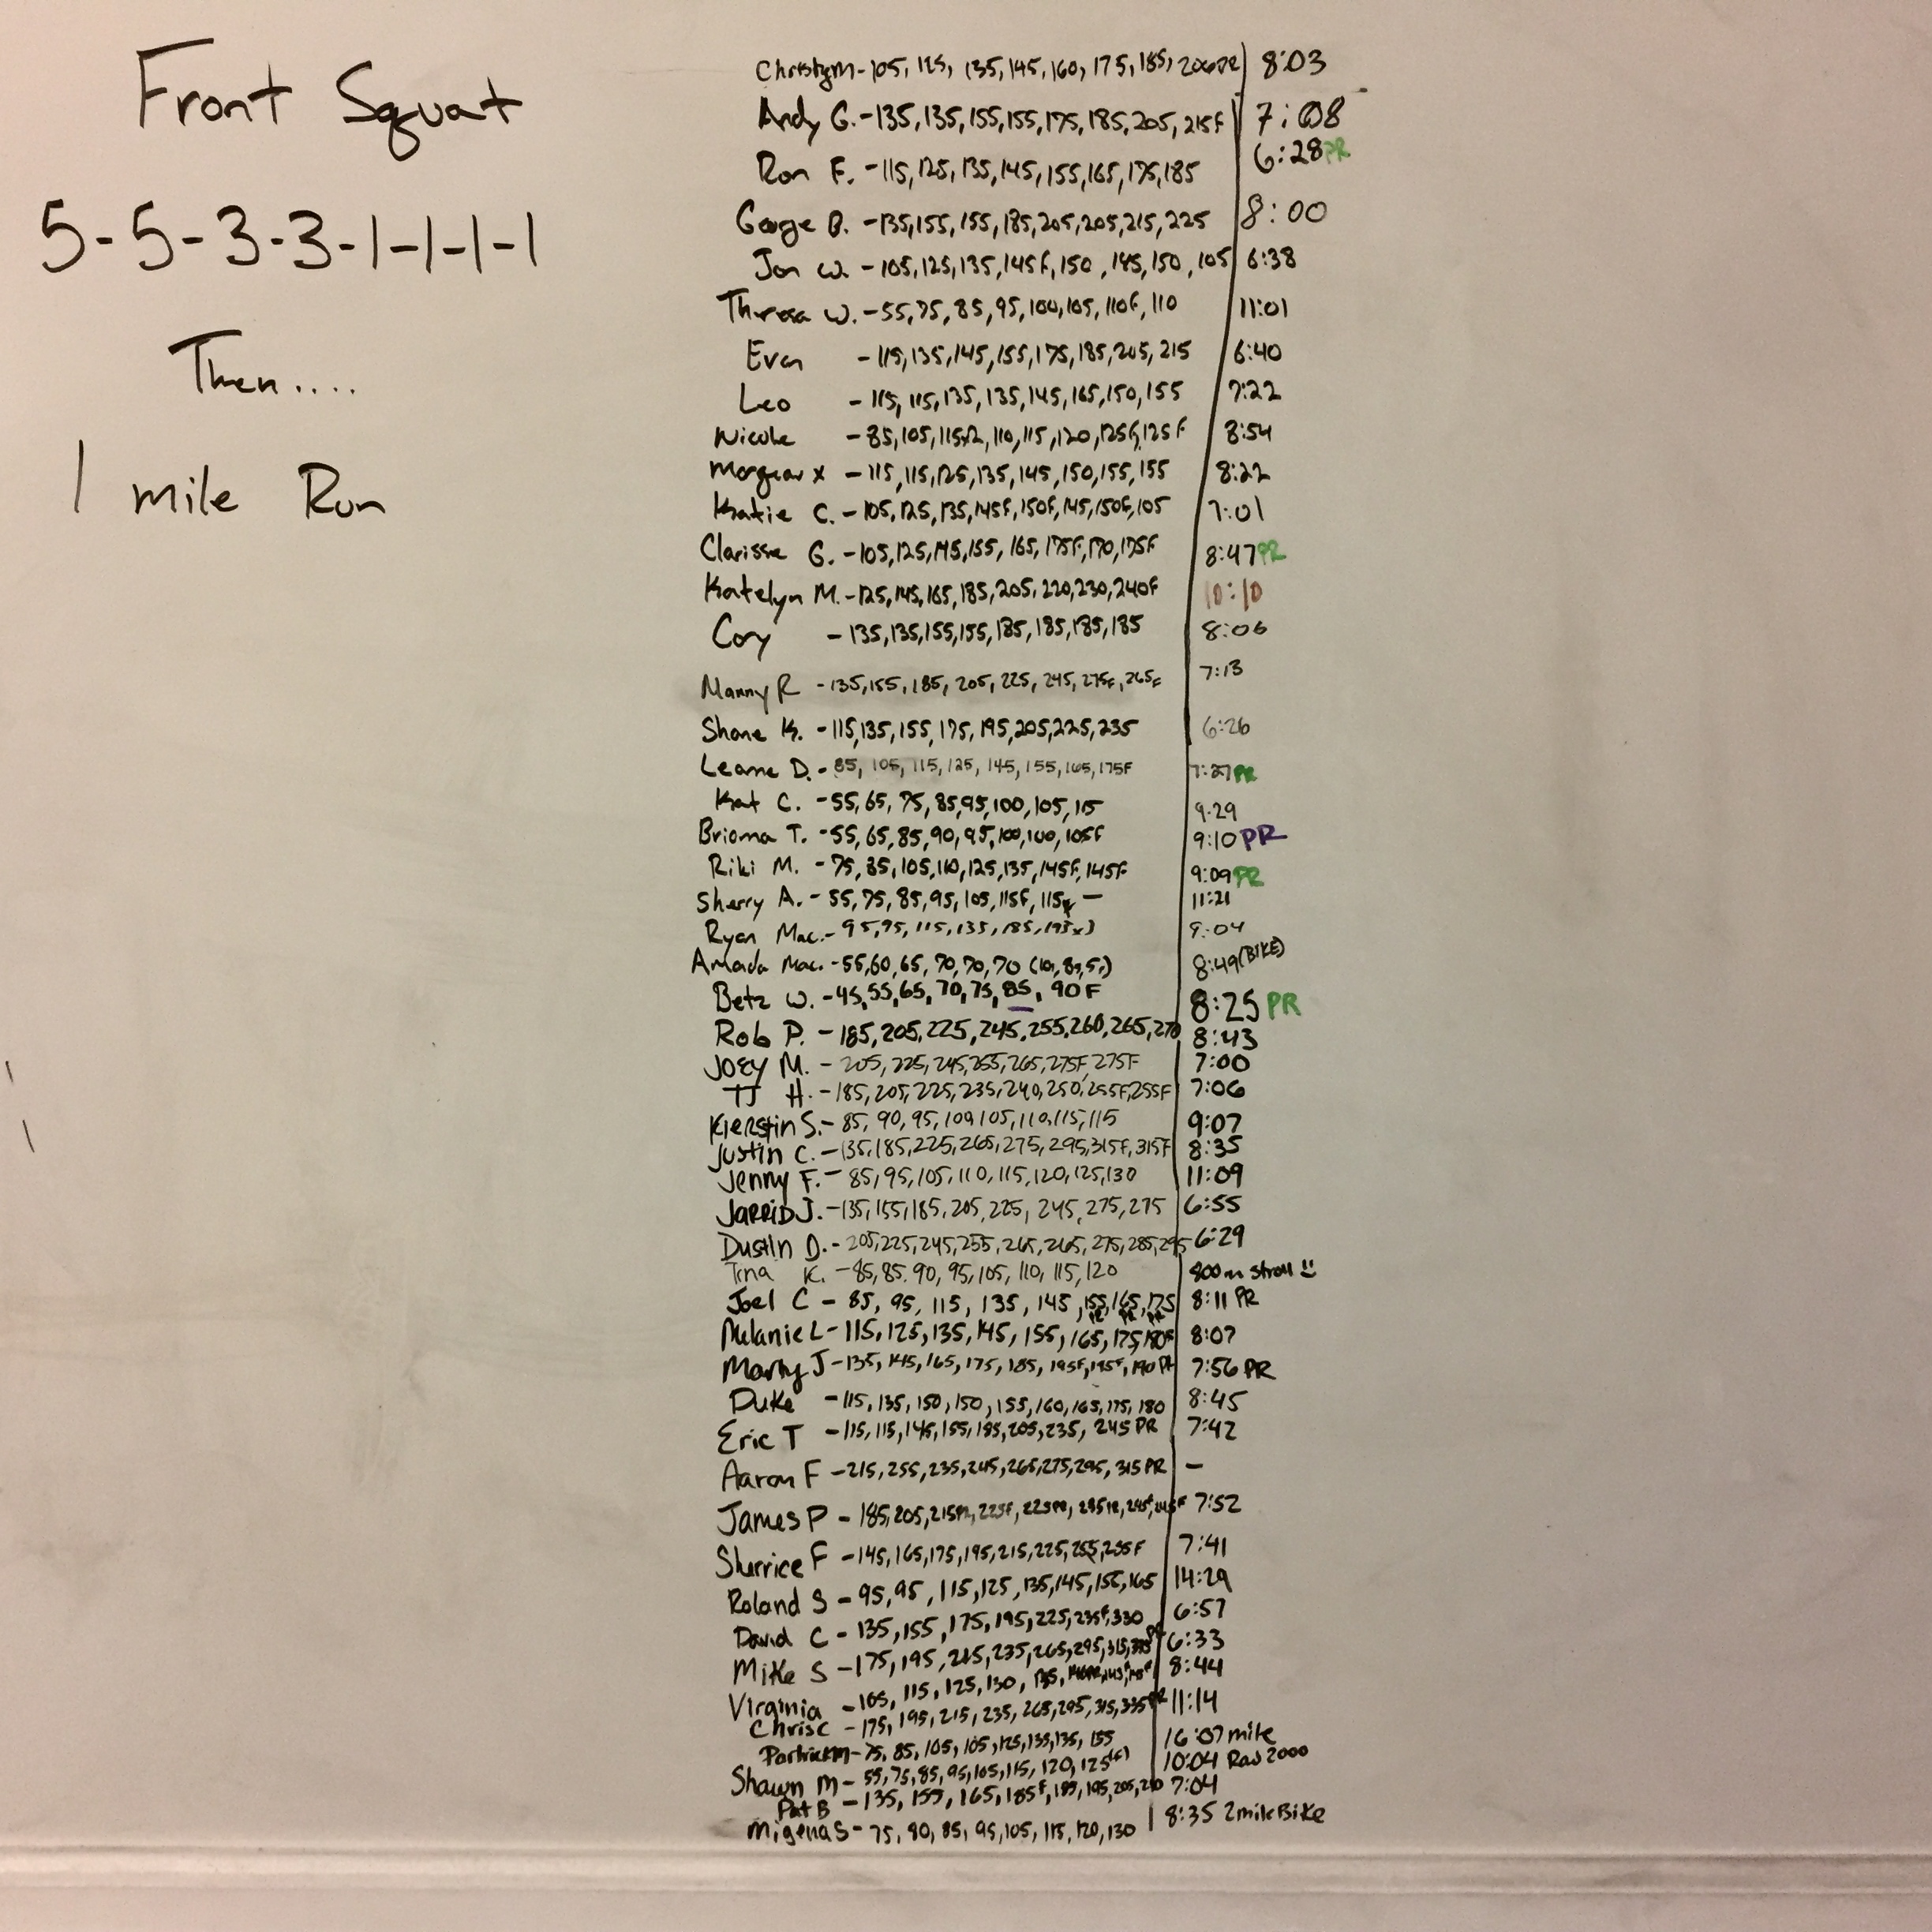 Front Squat
5-5-3-3-1-1-1-1
Then....
1 mile Run
Christy M-105, 125, 135, 145, 160, 175, 185, 200PR 8:03
Andy G.-135, 135, 155, 155, 175, 185, 205, 215F 7:08
Ron F. -115, 125, 135, 145, 155, 165, 175, 185 6:28 PR
George B. -135, 155, 155, 185, 205, 205, 215, 225 8:00
Jon W. -105, 125, 135, 145F, 150, 145, 150, 105 6:38
Theresa W. -55, 75, 85, 95, 100, 105, 110F, 110 11:01
Evan -115, 135, 145, 155, 175, 185, 205, 215 6:40
Leo -115, 115, 135, 135, 145, 165, 150, 155 7:22
Nicole -85, 105, 115x2, 110, 115, 120, 125F, 125F 8:54
Morgan x -115, 115, 125, 135, 145, 150, 155, 155 8:22
Katie C. -105, 125, 135, 145F, 150F, 145, 150F, 105 7:01
Clarisse G. -105, 125, 145, 155, 165, 175F, 170, 175F 8:47 PR
Katelyn M. -125, 145, 165, 185, 205, 220, 230, 240F 10:10
Cory -135, 135, 155, 155, 185, 185, 185, 185 8:06
Manny R -135, 155, 185, 205, 225, 245, 275F, 265F 7:13
Shane K. -115, 135, 155, 175, 195, 205, 225, 235 6:26
Leanne D. -85, 105, 115, 125, 145, 155, 165, 175F 7:27 PR
Kat C. -55, 65, 75, 85, 95, 100, 105, 115 9:29
Brionna T. -55, 65, 85, 90, 95, 100, 100, 105F 9:10 PR
Riki M. -75, 85, 105, 110, 125, 135, 145F, 145F 9:09 PR
Sherry A. -55, 75, 85, 95, 105, 115F, 115F - 11:21
Ryan Mac. -95, 95, 115, 135, 185, 9:04
Amada Mac. -55, 60, 65, 70, 70, 70 8:49 (BIKE)
Betz W. -45, 55, 65, 70, 75, 85, 90F 8:25 PR
Rob P. -185, 205, 225, 245, 255, 260, 265, 270 8:43
Joey M. -205, 225, 245, 255, 265, 275F, 275F 7:00
TJ H. -185, 205, 225, 235, 240, 250, 255F, 255F 7:06
Kierstin S. -85, 90, 95, 100, 105, 110, 115, 115 9:07
Justin C. -135, 185, 225, 265, 275, 295, 315F, 315F 8:35
Jenny F. -85, 95, 105, 110, 115, 120, 125, 130 11:09
JARRID J. -135, 155, 185, 205, 225, 245, 275, 275 6:55
Dustin D. -205, 225, 245, 255, 265, 265, 275, 285, 295 6:29
Tina K. -85, 85, 90, 95, 105, 110, 115, 120 800m stroll !!
Joel C - 85, 95, 115, 135, 145, 155, 165, 175 8:11 PR
Melanie L -115, 125, 135, 145, 155, 165, 175, 180F 8:07
Marty J -135, 145, 165, 175, 185, 195F, 195F, 190 PR 7:56 PR
Duke -115, 135, 150, 150, 155, 160, 165, 175, 180 8:45
Eric T -115, 115, 145, 155, 185, 205, 235, 245 PR 7:42
Aaron F -215, 255, 235, 245, 265, 275, 295, 315 PR -
James P - 185, 205, 215PR, 225F, 225PR, 235PR, 245F, 245F 7:52
Sherrice F -145, 165, 175, 195, 215, 225, 255, 255F 7:41
Roland S - 95, 95, 115, 125, 135, 145, 155, 165 14:29
David C - 135, 155, 175, 195, 225, 235F, 330 6:57
Mike S -175, 195, 215, 235, 265, 295, 315, 335PR 6:33
Virginia -105, 115, 125, 130, 135, 8:44
Chris C -175, 195, 215, 235, 265, 295, 315, 335PR 11:14
Patrick M- 75, 85, 105, 105, 125, 135, 135, 155 16:07 mile
Shawn M- 55, 75, 85, 95, 105, 115, 120, 125(F) 10:04 Row 2000
Pat B -135, 155, 165, 185F, 185, 195, 205, 210 7:04
Migena S- 75, 90, 85, 95, 105, 115, 120, 130 8:35 2 mile Bike